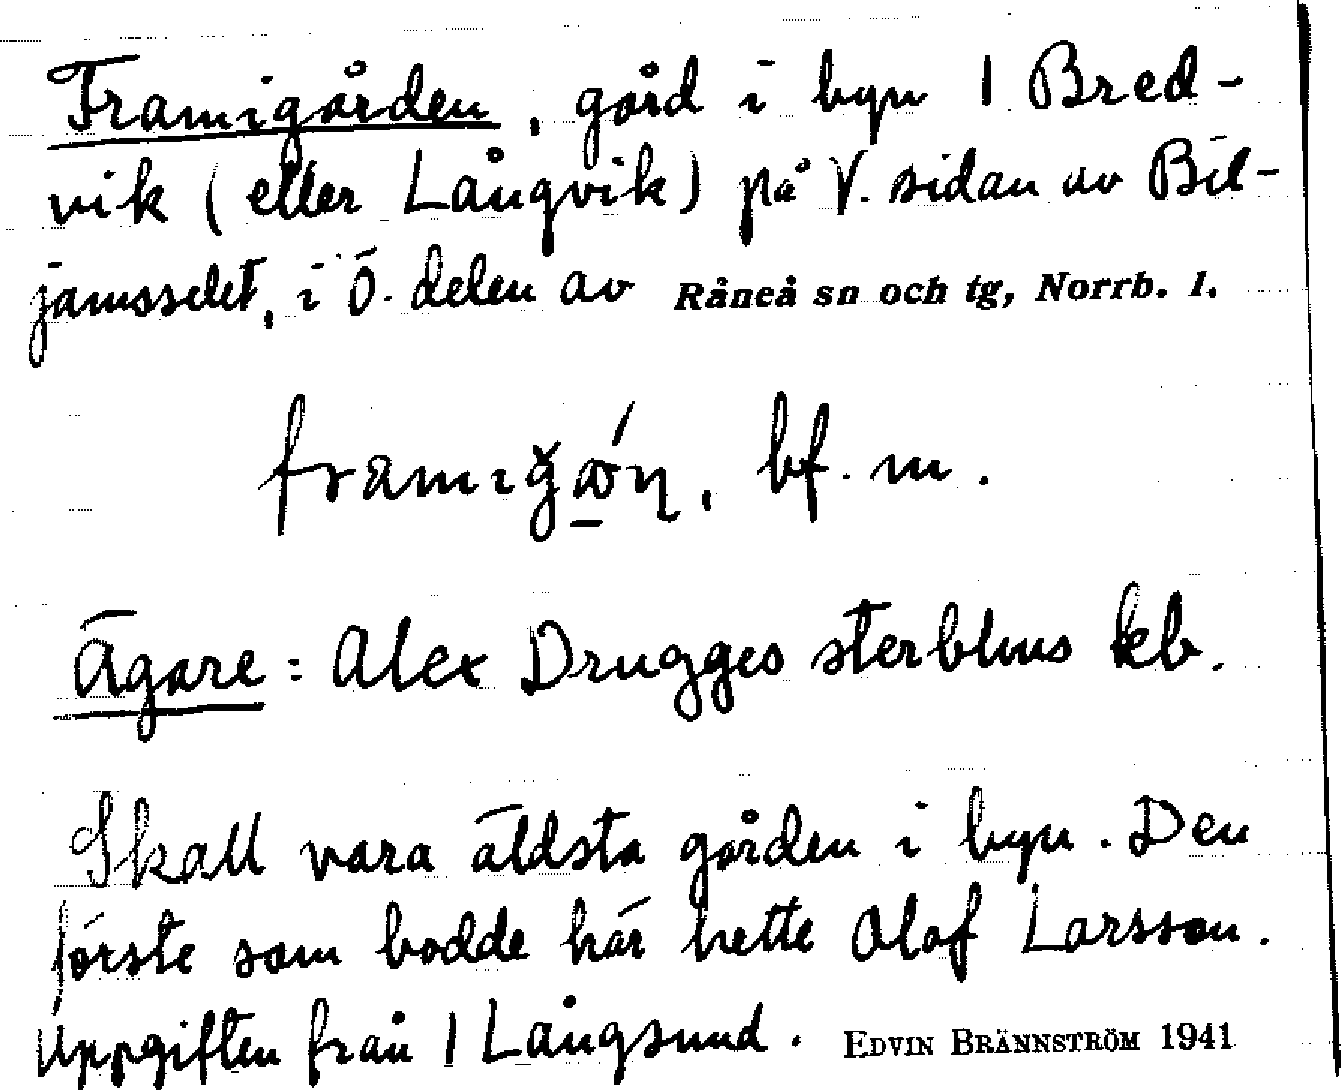 Framigården, gård i byn 1 Bred-
vik (eller Långvik) på V. sidan av Bil-
jamsselet, i Ö. delen av Råneå sn och tg, Norrb. l.
bf. m.
Ägare: Alex Drugges sterbhus kb.
Skall vara äldsta gården i byn. Den
förste som bodde här hette Olof Larsson.
Uppgiften från 1 Långsund. EDVIN BRÄNNSTRÖM 1941